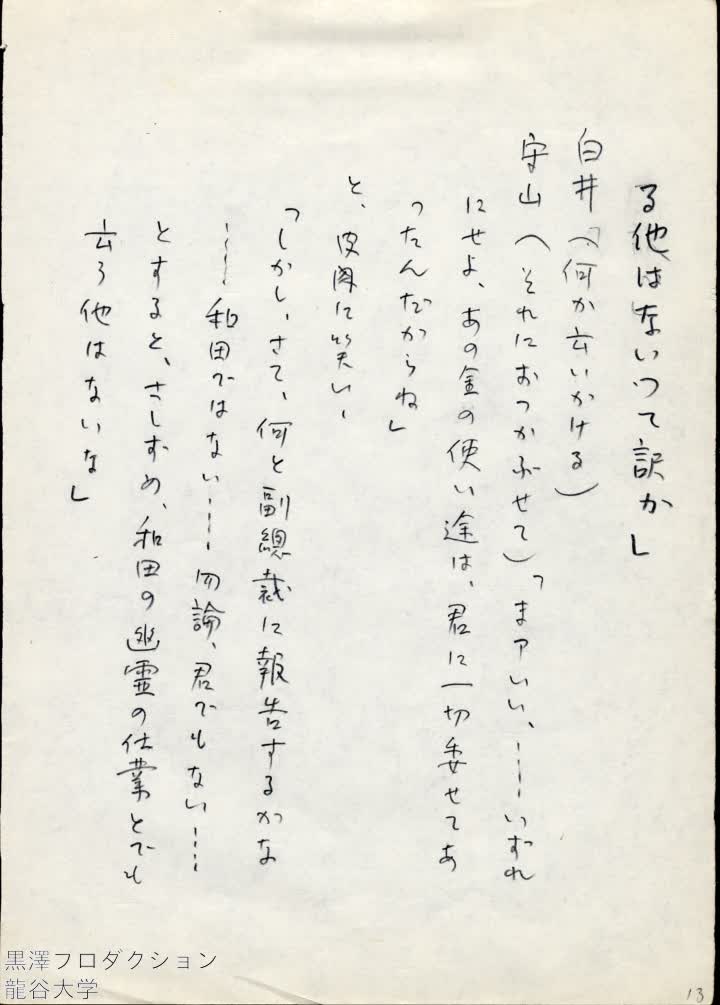 る他はないつて訳か」
白井（何か云いかける）
守山（それにおつかぶせて）「まアいい、……いずれ
にせよ、あの金の使い途は、君に一切委せてあ
つたんだからね」
と、皮肉に笑い、
「しかし、さて、何と副總裁に報告するかな
……和田ではない……勿論、君でもない……
とすると、さしずめ、和田の幽霊の仕業とでも
云う他はないな」
13
黒澤プロダクション
龍谷大学